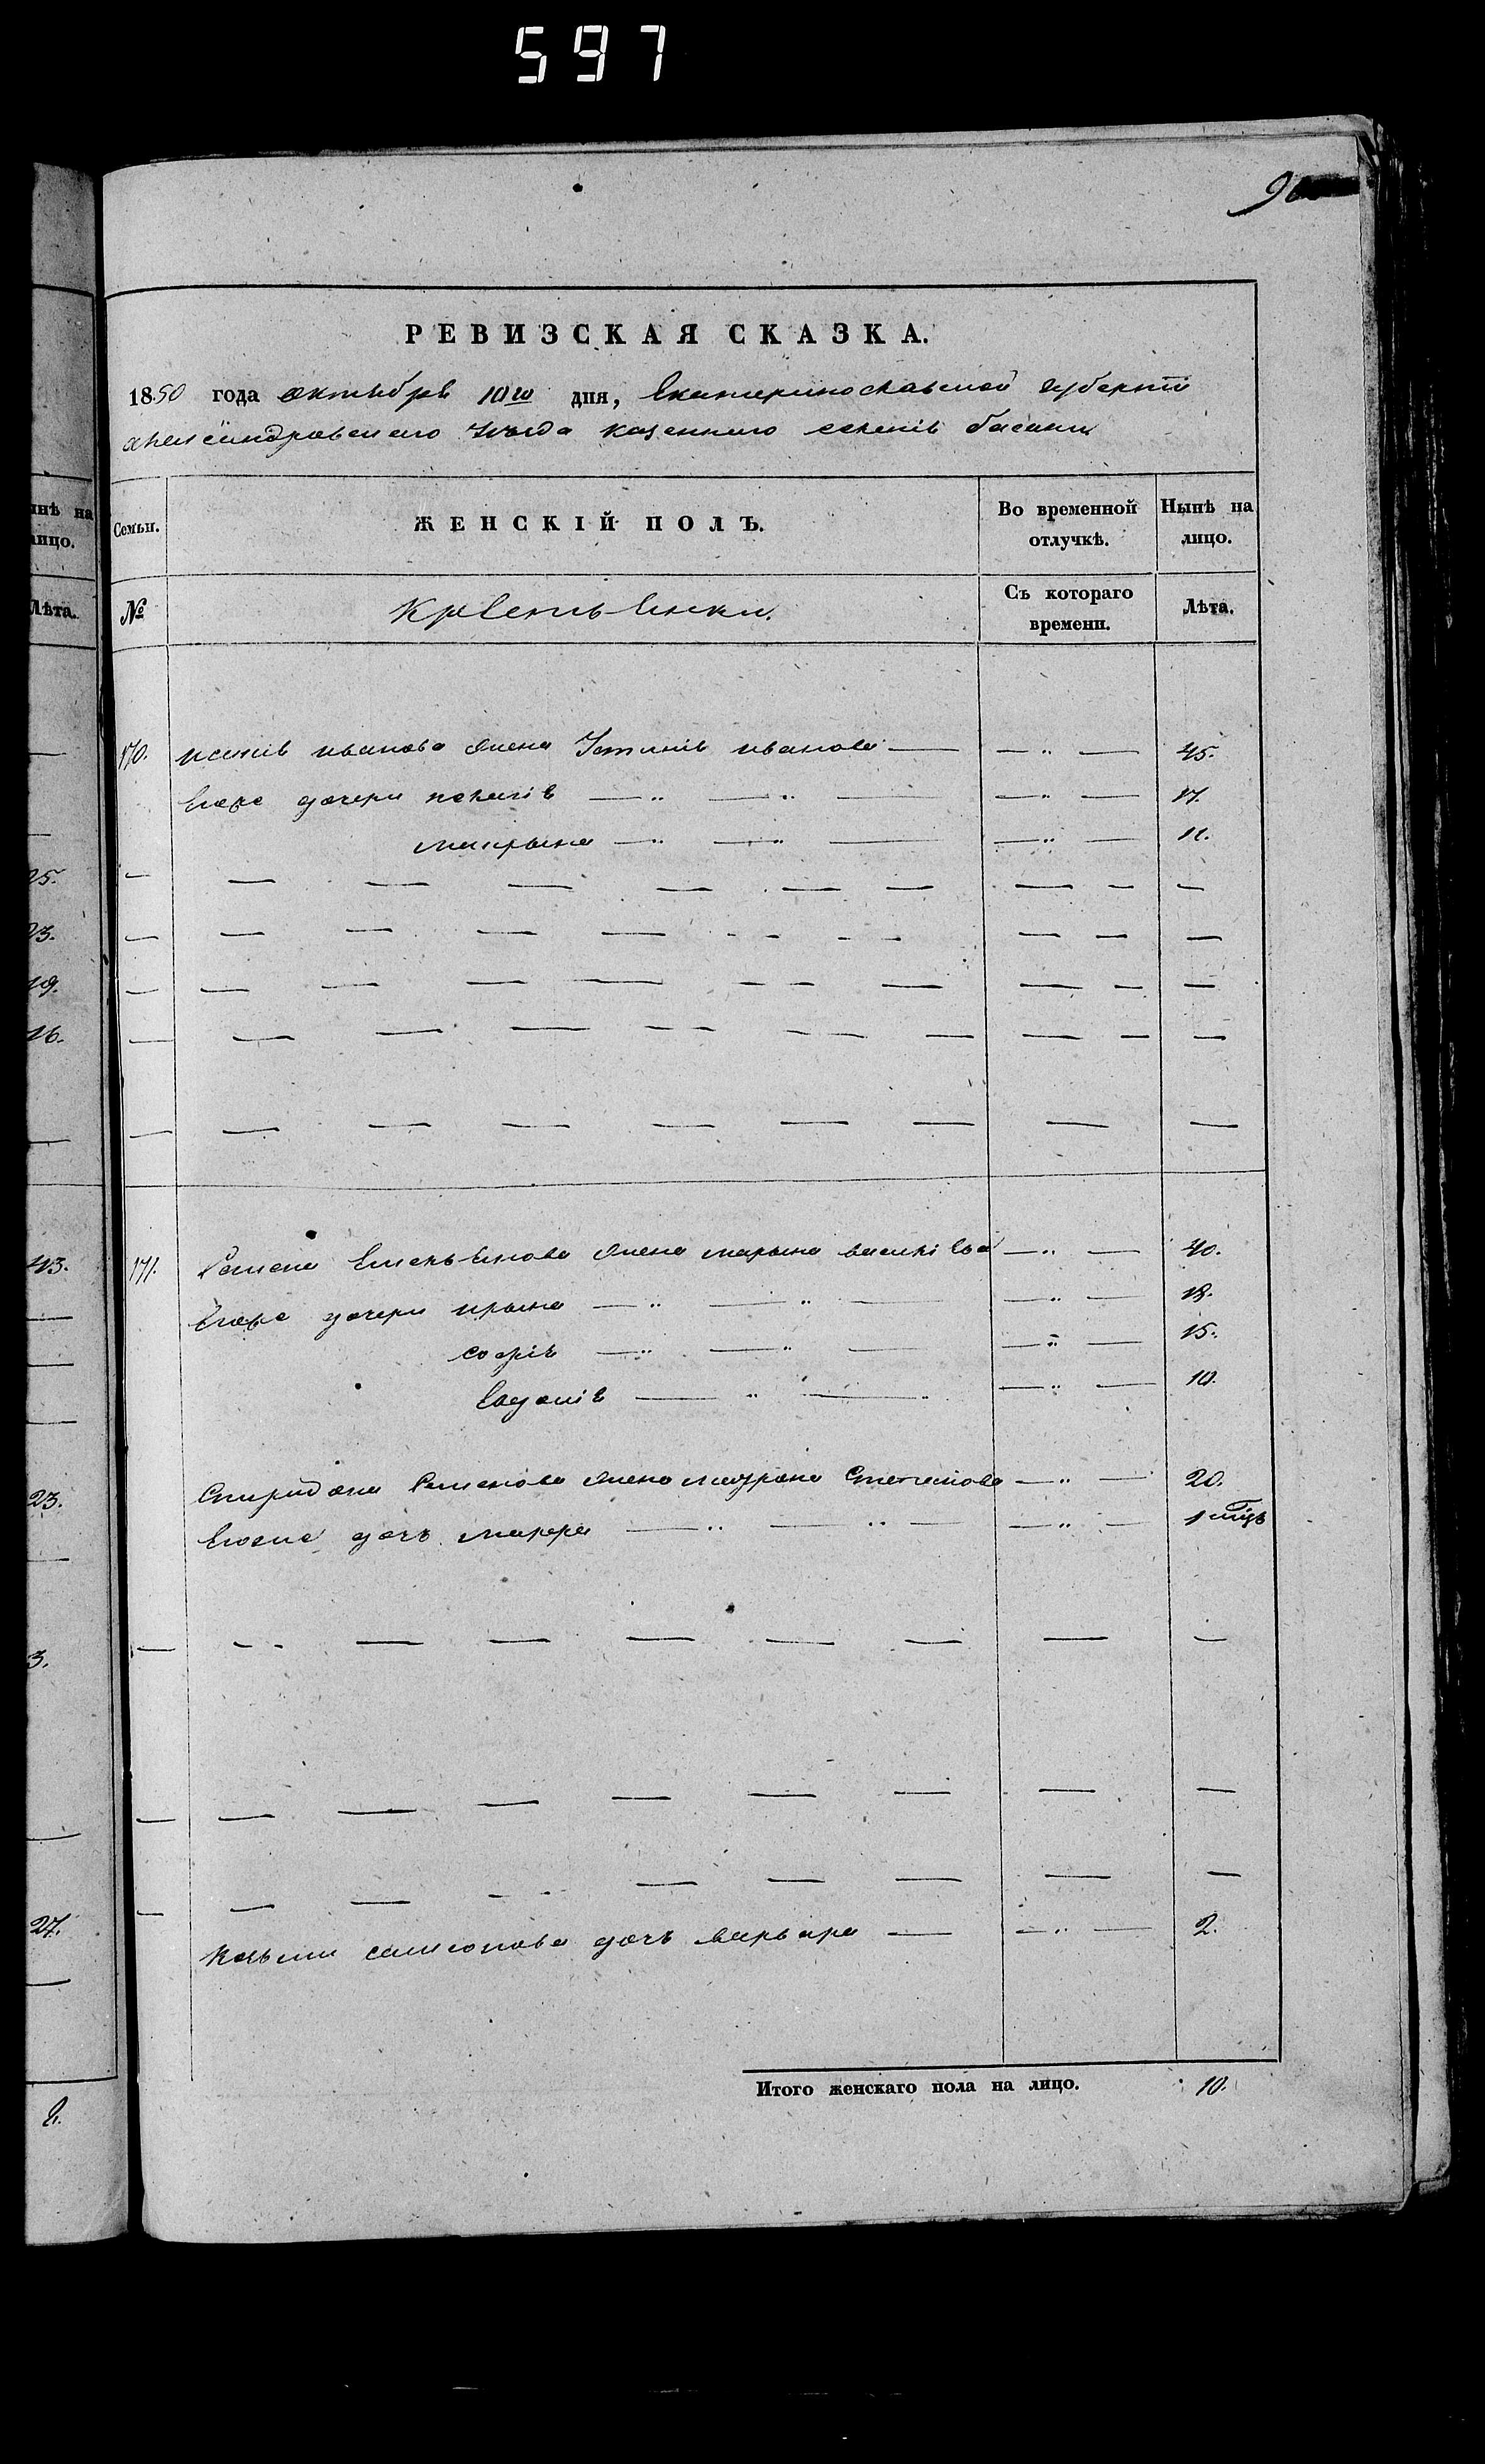 597
РЕВИЗСКАЯ СКАЗКА.
1850 года октября 10го дня, Екатеринославской губернiи
александровского уѣзда казенного селенiя басани
Семьи.
ЖЕНСКІЙ ПОЛЪ.
Во временной отлучкѣ.
Нынѣ на лицо.
№
Крестьянки.
Съ котораго времени.
Лѣта.
170. иванова жена Устинiя иванова — — " — 45.
Его же дочери пелагiя — " — " — — " — 17.
макрына — " — " — — " — 11.
171. Семена Емельянова жена марына василiева — " — 40.
Его же дочери ирына — " — " — — " — 18.
софiя — " — " — — " — 15.
Евдокiя — " — " — " — 10.
Спиридона Семенова жена матрона Степанова — " — 20.
Его же дочь марфа — " — " — — " — 1 мцъ
Козьми самсонова дочь варвара — — " — 2.
Итого женскаго пола на лицо. 10.
нѣ на
лицо.
Лѣта.
25.
23.
19.
16.
43.
23.
3.
27.